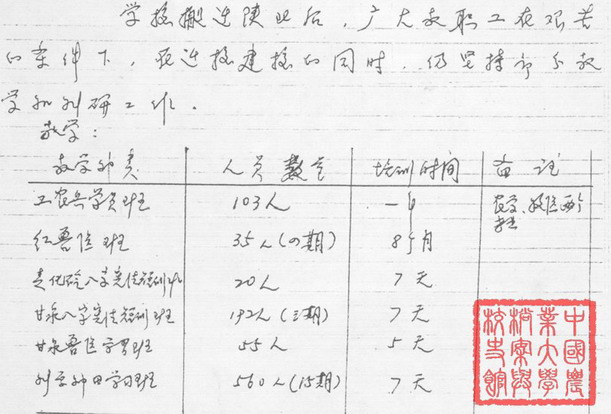 学校搬迁陕北后,广大教职工在艰苦
的条件下,在迁校建校的同时,仍坚持部分教
学和科研工作.
教学:
教学种类 人员数量 培训时间 备注
工农兵学员班 103人 一年 农学、牧医两个
红兽医班 35人(四期) 8个月
八字宪法短训班 20人 7天
甘泉八字宪法短训班 192人(三期) 7天
甘泉兽医学习班 55人 5天
科学种田学习班 560人(15期) 7天
中國農
業大學
檔案與
校史館